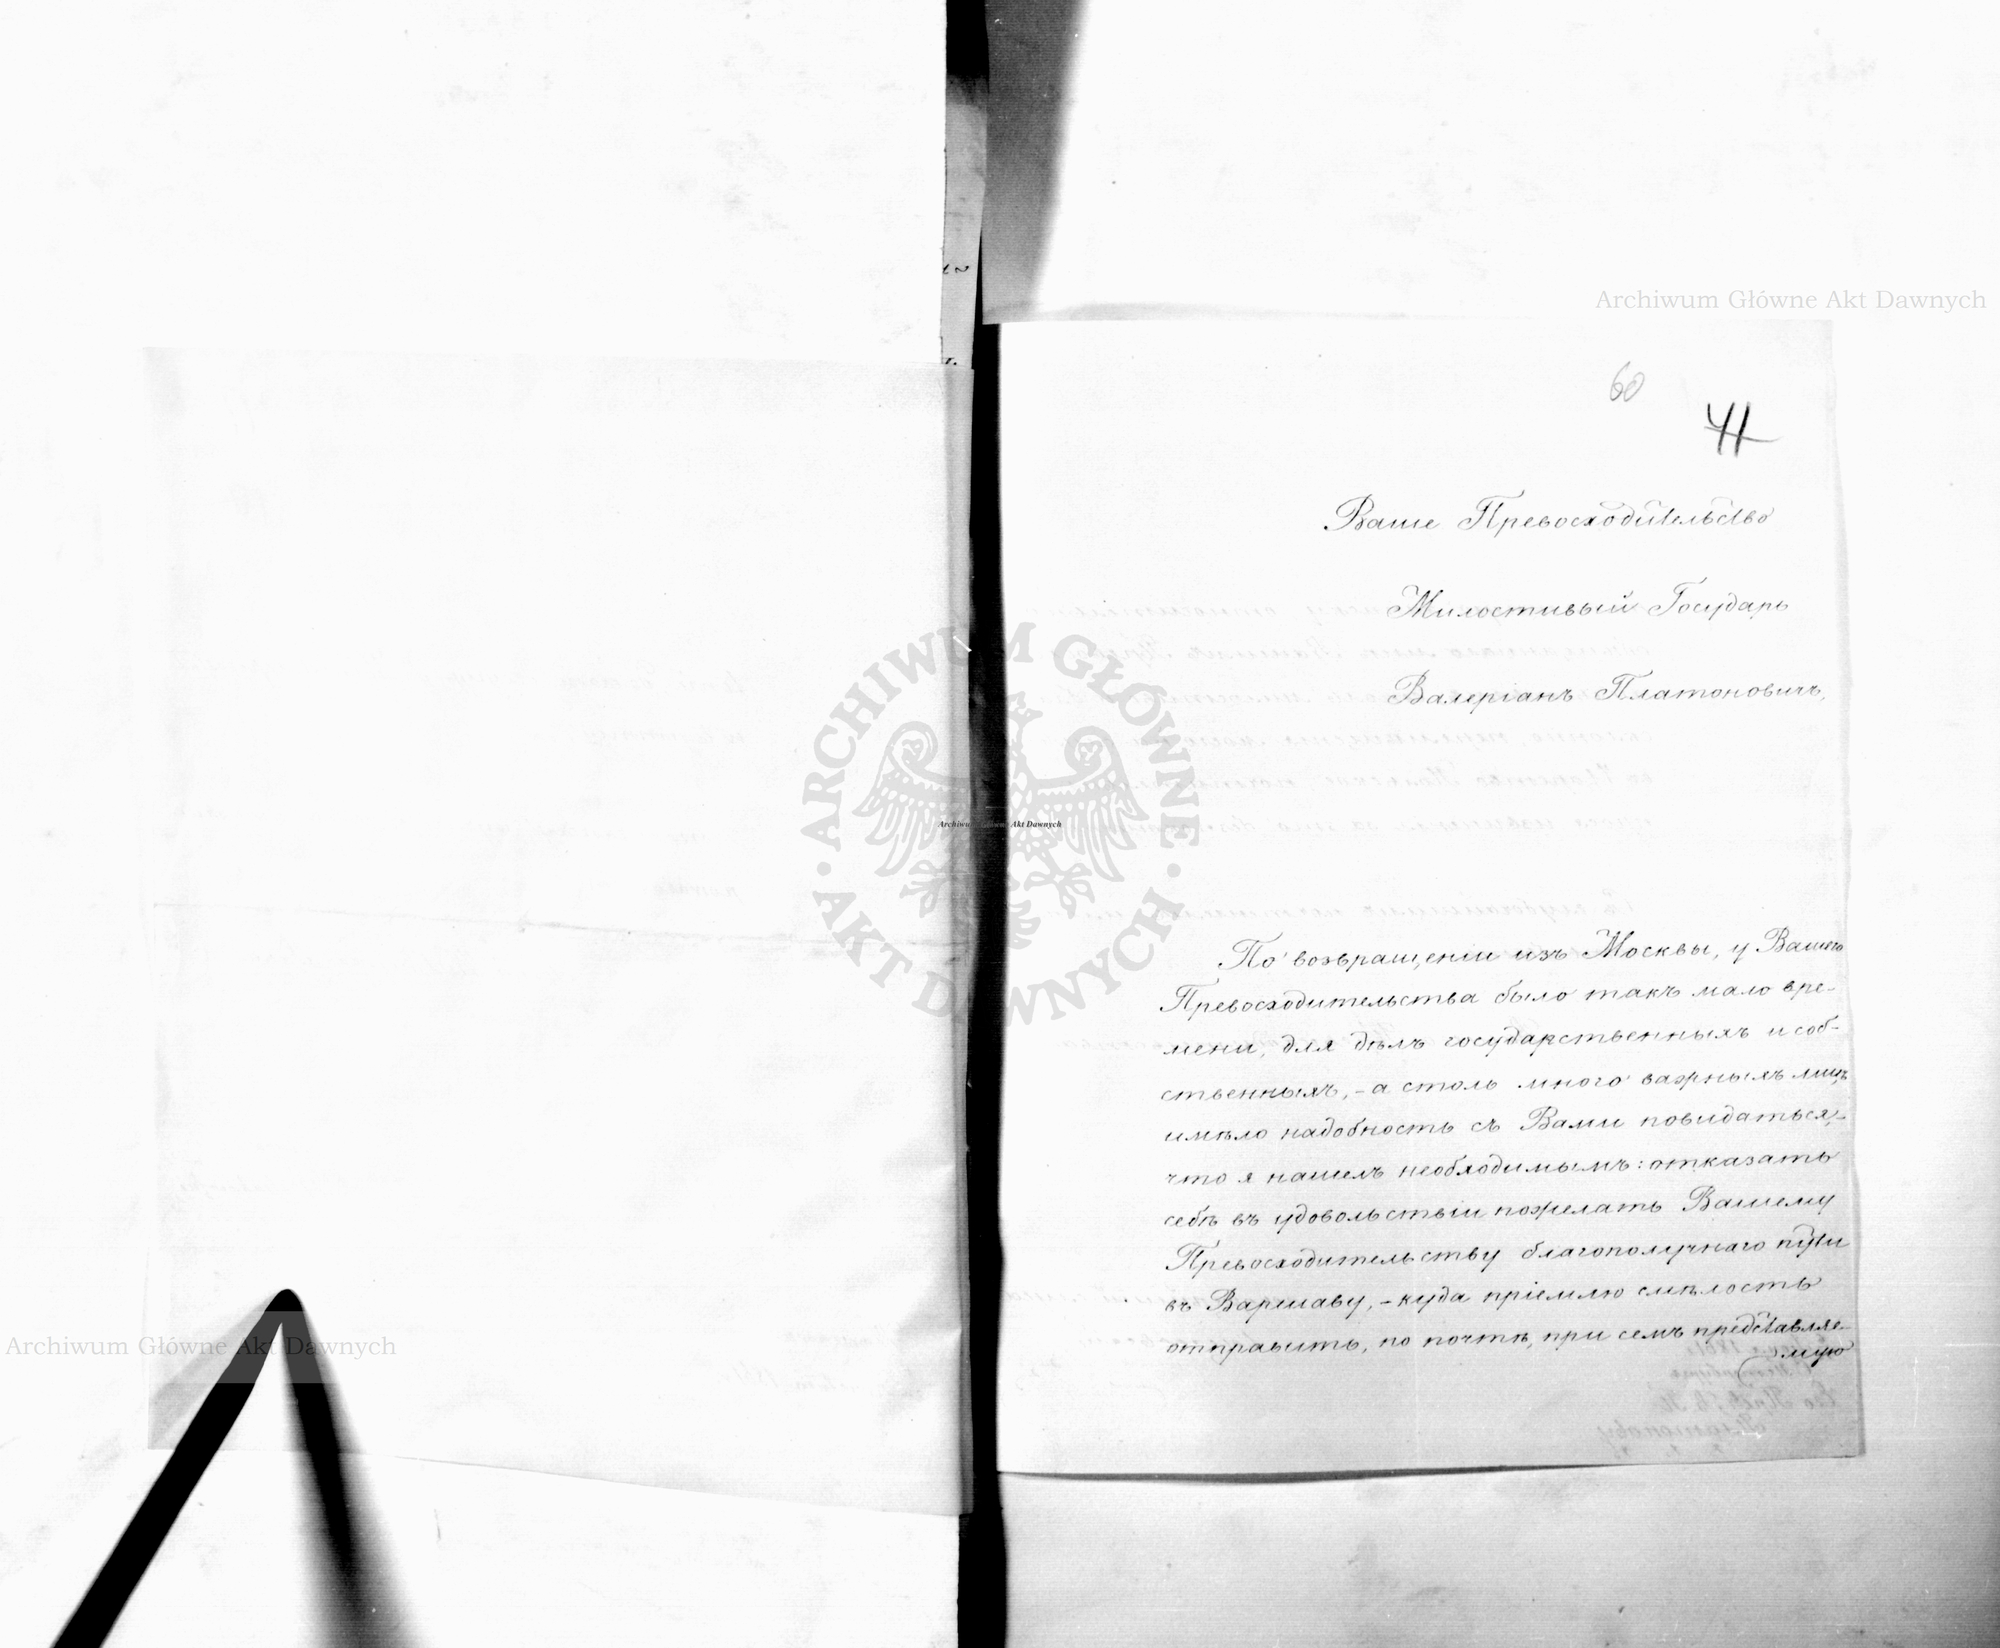 60
41
Ваше Превосходительство
Милостивый Государь
Валеріанъ Платоновичъ,
По возвращеніи изъ Москвы, у Вашего
Превосходительства было такъ мало вре-
мени, для дѣлъ государственныхъ и соб-
ственныхъ, - а столь много важныхъ лицъ
имѣло надобность съ Вами повидаться, -
что я нашелъ необходимымъ: отказать
себѣ въ удовольствіи пожелать Вашему
Превосходительству благополучнаго пути
въ Варшаву, - куда пріемлю смѣлость
отправить, по почтѣ, при семъ представляе-
мую
Archiwum Główne Akt Dawnych
ARCHIWUM GŁÓWNE AKT DAWNYCH
Archiwum Główne Akt Dawnych
Archiwum Główne Akt Dawnych